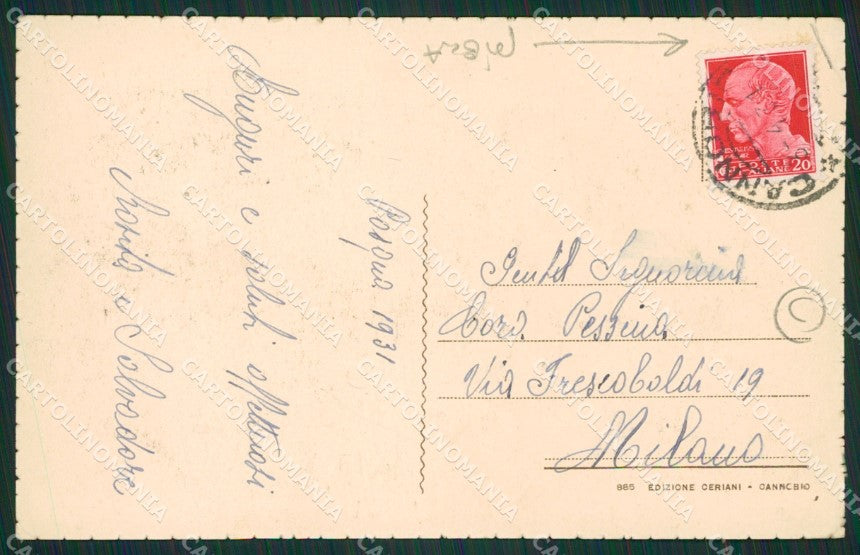 Pasqua 1931
Auguri e saluti affettuosi
e Salvadore
Gentil Signorina
Cora Pessina
Via Frescobaldi 19
Milano
885 EDIZIONE CERIANI - CANNOBIO
POSTE ITALIANE 20
CARTOLINOMANIA